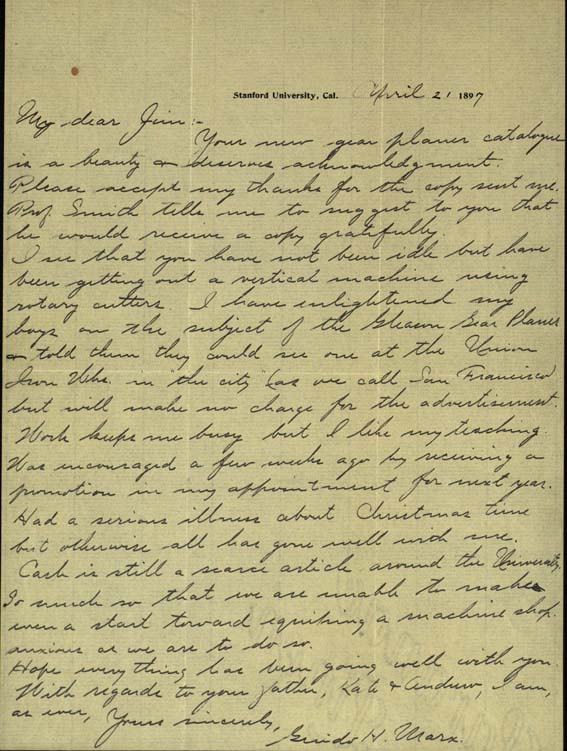 Stanford University, Cal. April 21 1897
My dear Jim:-
Your new gear planer catalogue
is a beauty & deserves acknowledgment.
Please accept my thanks for the copy sent me.
Prof. Smith tells me to suggest to you that
he would receive a copy gratefully.
I see that you have not been idle but have
been getting out a vertical machine using
rotary cutters. I have enlightened my
boys on the subject of the Gleason Gear Planer
& told them they could see one at the Union
Iron Wks. in "the city" (as we call San Francisco)
but will make no charge for the advertisement.
Work keeps me busy but I like my teaching.
Was encouraged a few weeks ago by receiving a
promotion in my appointment for next year.
Had a serious illness about Christmas time
but otherwise all has gone well with me.
Cash is still a scarce article around the University.
So much so that we are unable to make
even a start toward equipping a machine shop.
anxious as we are to do so.
Hope everything has been going well with you.
With regards to your father, Kate & Andrew, I am,
as ever, Yours sincerely,
Guido H. Marx.